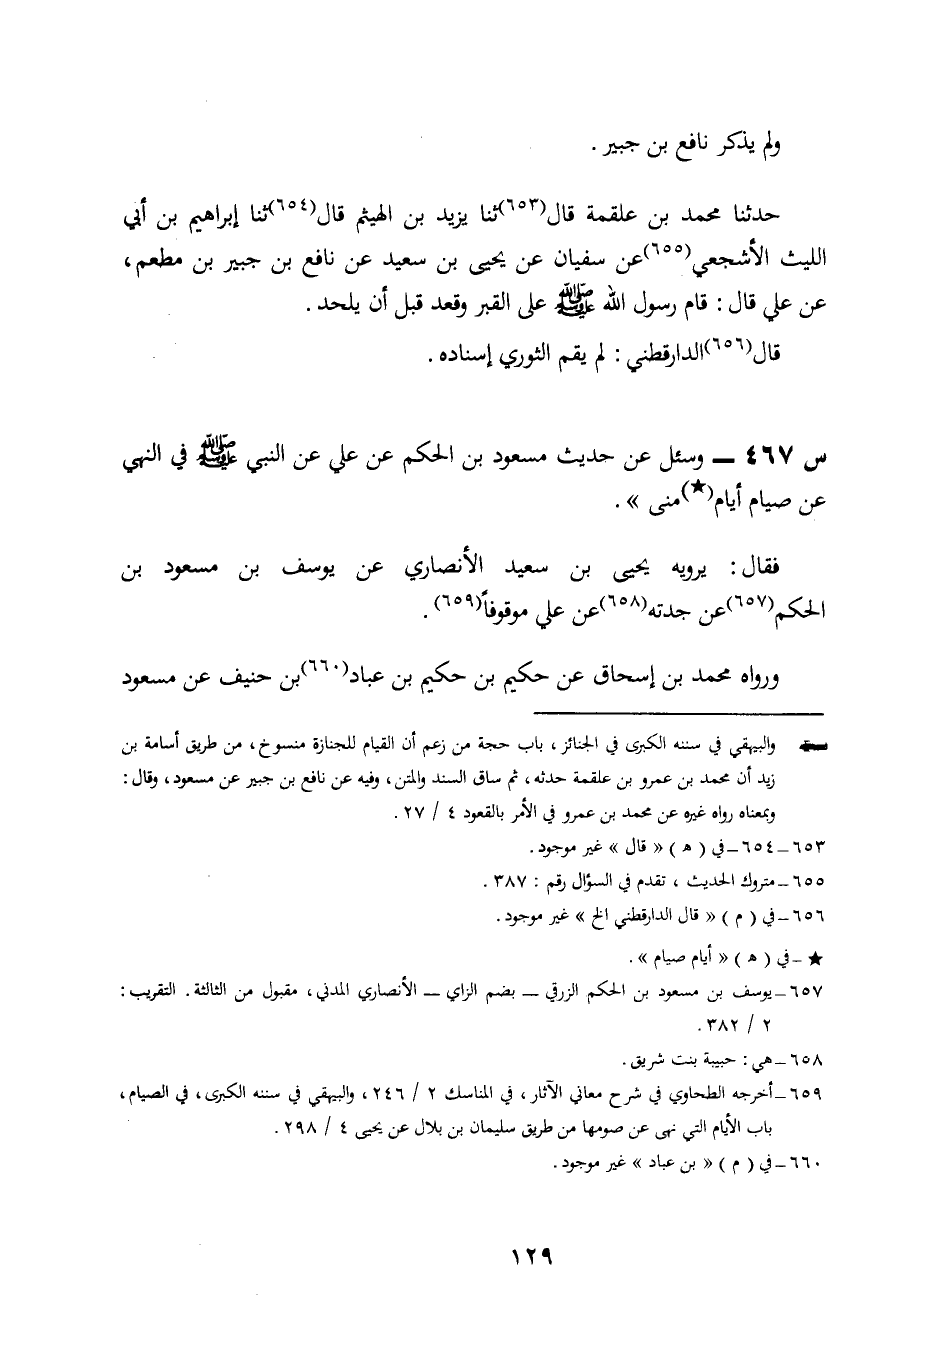 ولم يذكر نافع بن جبير .
حدثنا محمد بن علقمة قال(٦٥٣)ثنا يزيد بن الهيثم قال(٦٥٤)ثنا إبراهيم بن أبي
الليث الأشجعي(٦٥٥)عن سفيان عن يحيى بن سعيد عن نافع بن جبير بن مطعم،
عن علي قال : قام رسول الله ﷺ على القبر وقعد قبل أن يلحد .
قال(٦٥٦)الدارقطني : لم يقم الثوري إسناده .
س ٤٦٧ ــ وسئل عن حديث مسعود بن الحكم عن علي عن النبي ﷺ في النهي
عن صيام أيام(★)منى » .
فقال : يرويه يحيى بن سعيد الأنصاري عن يوسف بن مسعود بن
الحكم(٦٥٧)عن جدته(٦٥٨)عن علي موقوفاً(٦٥٩) .
ورواه محمد بن إسحاق عن حكيم بن حكيم بن عباد(٦٦٠)بن حنيف عن مسعود
والبيهقي في سننه الكبرى في الجنائز ، باب حجة من زعم أن القيام للجنازة منسوخ ، من طريق أسامة بن
زيد أن محمد بن عمرو بن علقمة حدثه ، ثم ساق السند والمتن، وفيه عن نافع بن جبير عن مسعود ، وقال :
وبمعناه رواه غيره عن محمد بن عمرو في الأمر بالقعود ٤ / ٢٧ .
٦٥٣ــ٦٥٤ــفي ( ه ) « قال » غير موجود .
٦٥٥ــمتروك الحديث ، تقدم في السؤال رقم : ٣٨٧ .
٦٥٦ــفي ( م ) « قال الدارقطني الخ » غير موجود .
★ ــفي ( ه ) « أيام صيام » .
٦٥٧ــيوسف بن مسعود بن الحكم الزرقي ــ بضم الزاي ــ الأنصاري المدني ، مقبول من الثالثة . التقريب :
٢ / ٣٨٢ .
٦٥٨ــهي : حبيبة بنت شريق .
٦٥٩ــأخرجه الطحاوي في شرح معاني الآثار ، في المناسك ٢ / ٢٤٦ ، والبيهقي في سننه الكبرى ، في الصيام ،
باب الأيام التي نهى عن صومها من طريق سليمان بن بلال عن يحيى ٤ / ٢٩٨ .
٦٦٠ــفي ( م ) « بن عباد » غير موجود .
١٢٩